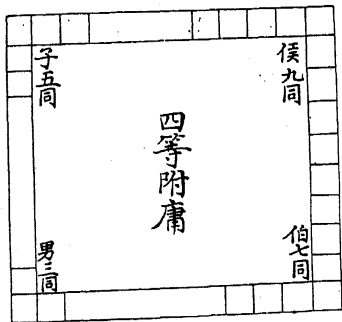 侯九同
伯七同
四等附庸
子五同
男三同